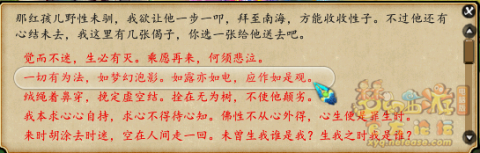 那红孩儿野性未驯，我欲让他一步一叩，拜至南海，方能收收性子。不过他还有
心结未去，我这里有几张偈子，你选一张给他送去吧。
觉而不迷，生必有灭。乘愿再来，何须悲泣。
一切有为法，如梦幻泡影。如露亦如电，应作如是观。
绒绳着鼻穿，挽定虚空结。拴在无为树，不使他颠劣。
我本求心心自持，求心不得待心知。佛性不从心外得，心生便是罪生时。
来时胡涂去时迷，空在人间走一回。未曾生我谁是我？生我之时我是谁？
梦幻西游